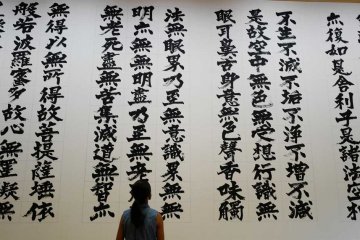 亦復如是舍利子是諸法空
不生不滅不垢不淨不增不減
是故空中無色無受想行識無
眼耳鼻舌身意無色聲香味觸
法無眼界乃至無意識界無無
明亦無無明盡乃至無老
無老死盡無苦集滅道無智亦
無得以無所得故菩提薩埵依
般若波羅蜜多故心無罣礙無